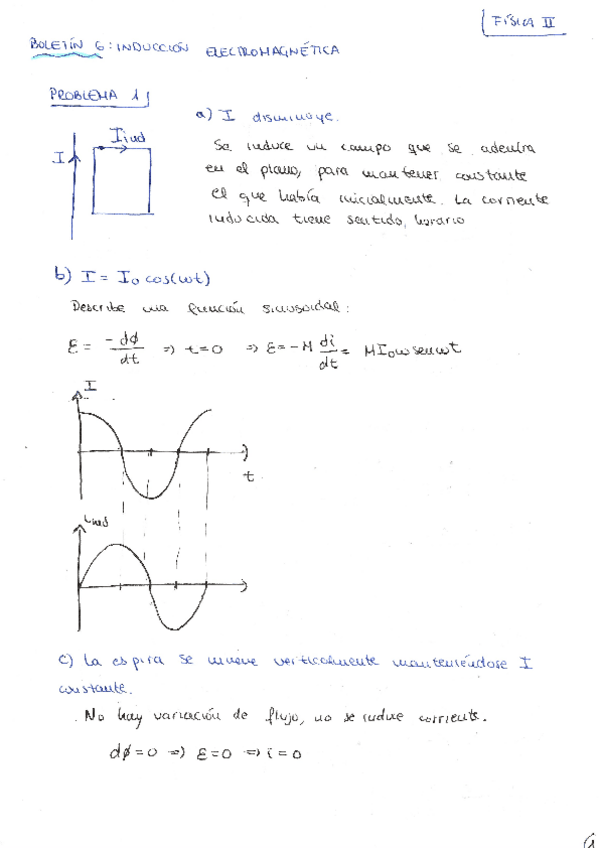 FÍSICA II
BOLETÍN 6: INDUCCIÓN ELECTROMAGNÉTICA
PROBLEMA 1
a) I disminuye.
I
Iind
Se induce un campo que se adentra
en el plano, para mantener constante
el que había inicialmente. La corriente
inducida tiene sentido, horario
b) I = I₀ cos(ωt)
Describe una función sinusoidal:
Ɛ = -dϕ/dt ⇒ t=0 ⇒ Ɛ = -M di/dt = MI₀ωsenωt
I
t
iind
c) La espira se mueve verticalmente manteniéndose I
constante.
. No hay variación de flujo, no se induce corriente.
dϕ=0 ⇒ Ɛ=0 ⇒ i=0